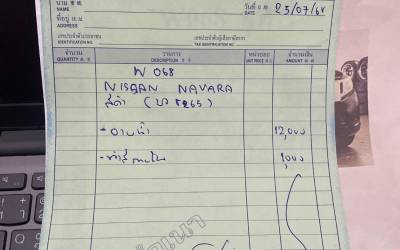 นาม
NAME
วันที่
DATE
25/07/64
ที่อยู่
ADDRESS
เลขประจำตัวประชาชน
IDENTIFICATION NO.
เลขประจำตัวผู้เสียภาษีอากร
TAX IDENTIFICATION NO.
จำนวน
QUANTITY
รายการ
DESCRIPTION
หน่วยละ
UNIT PRICE
จำนวนเงิน
AMOUNT
W 068
NISSAN NAVARA
สีดำ
12,000
1,000
สำเนา